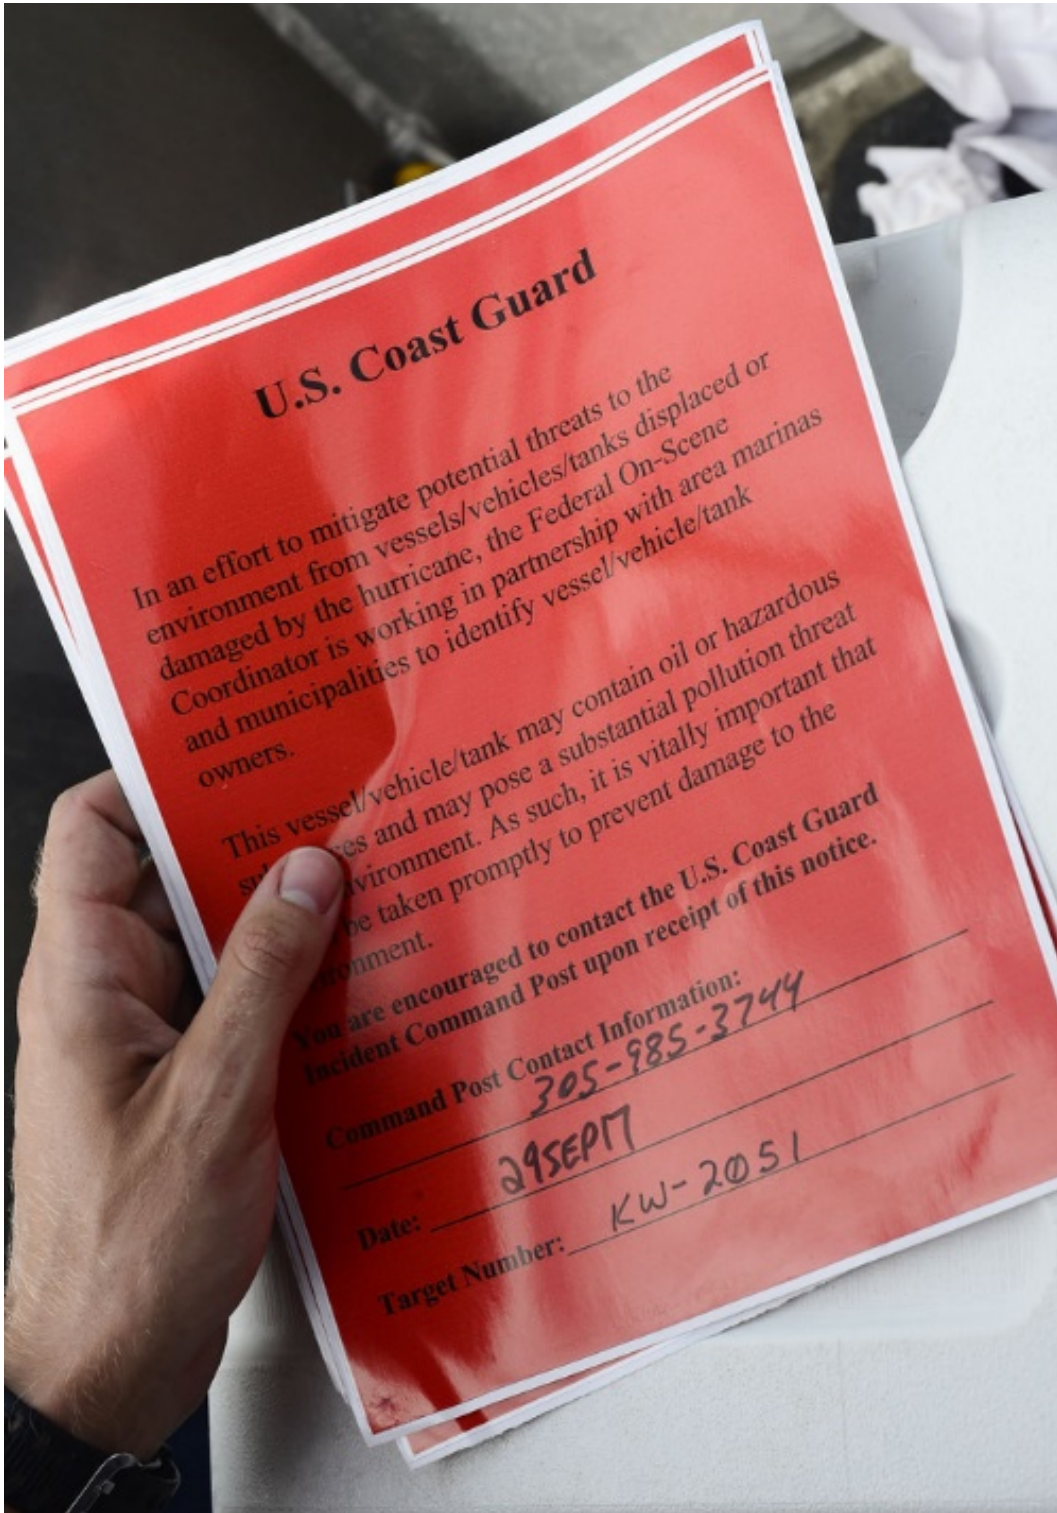 U.S. Coast Guard
In an effort to mitigate potential threats to the
environment from vessels/vehicles/tanks displaced or
damaged by the hurricane, the Federal On-Scene
Coordinator is working in partnership with area marinas
and municipalities to identify vessel/vehicle/tank
owners.
This vessel/vehicle/tank may contain oil or hazardous
and may pose a substantial pollution threat
As such, it is vitally important that
be taken promptly to prevent damage to the
You are encouraged to contact the U.S. Coast Guard
Incident Command Post upon receipt of this notice.
Command Post Contact Information:
305-985-3744
Date: 29SEP17
Target Number: KW-2051